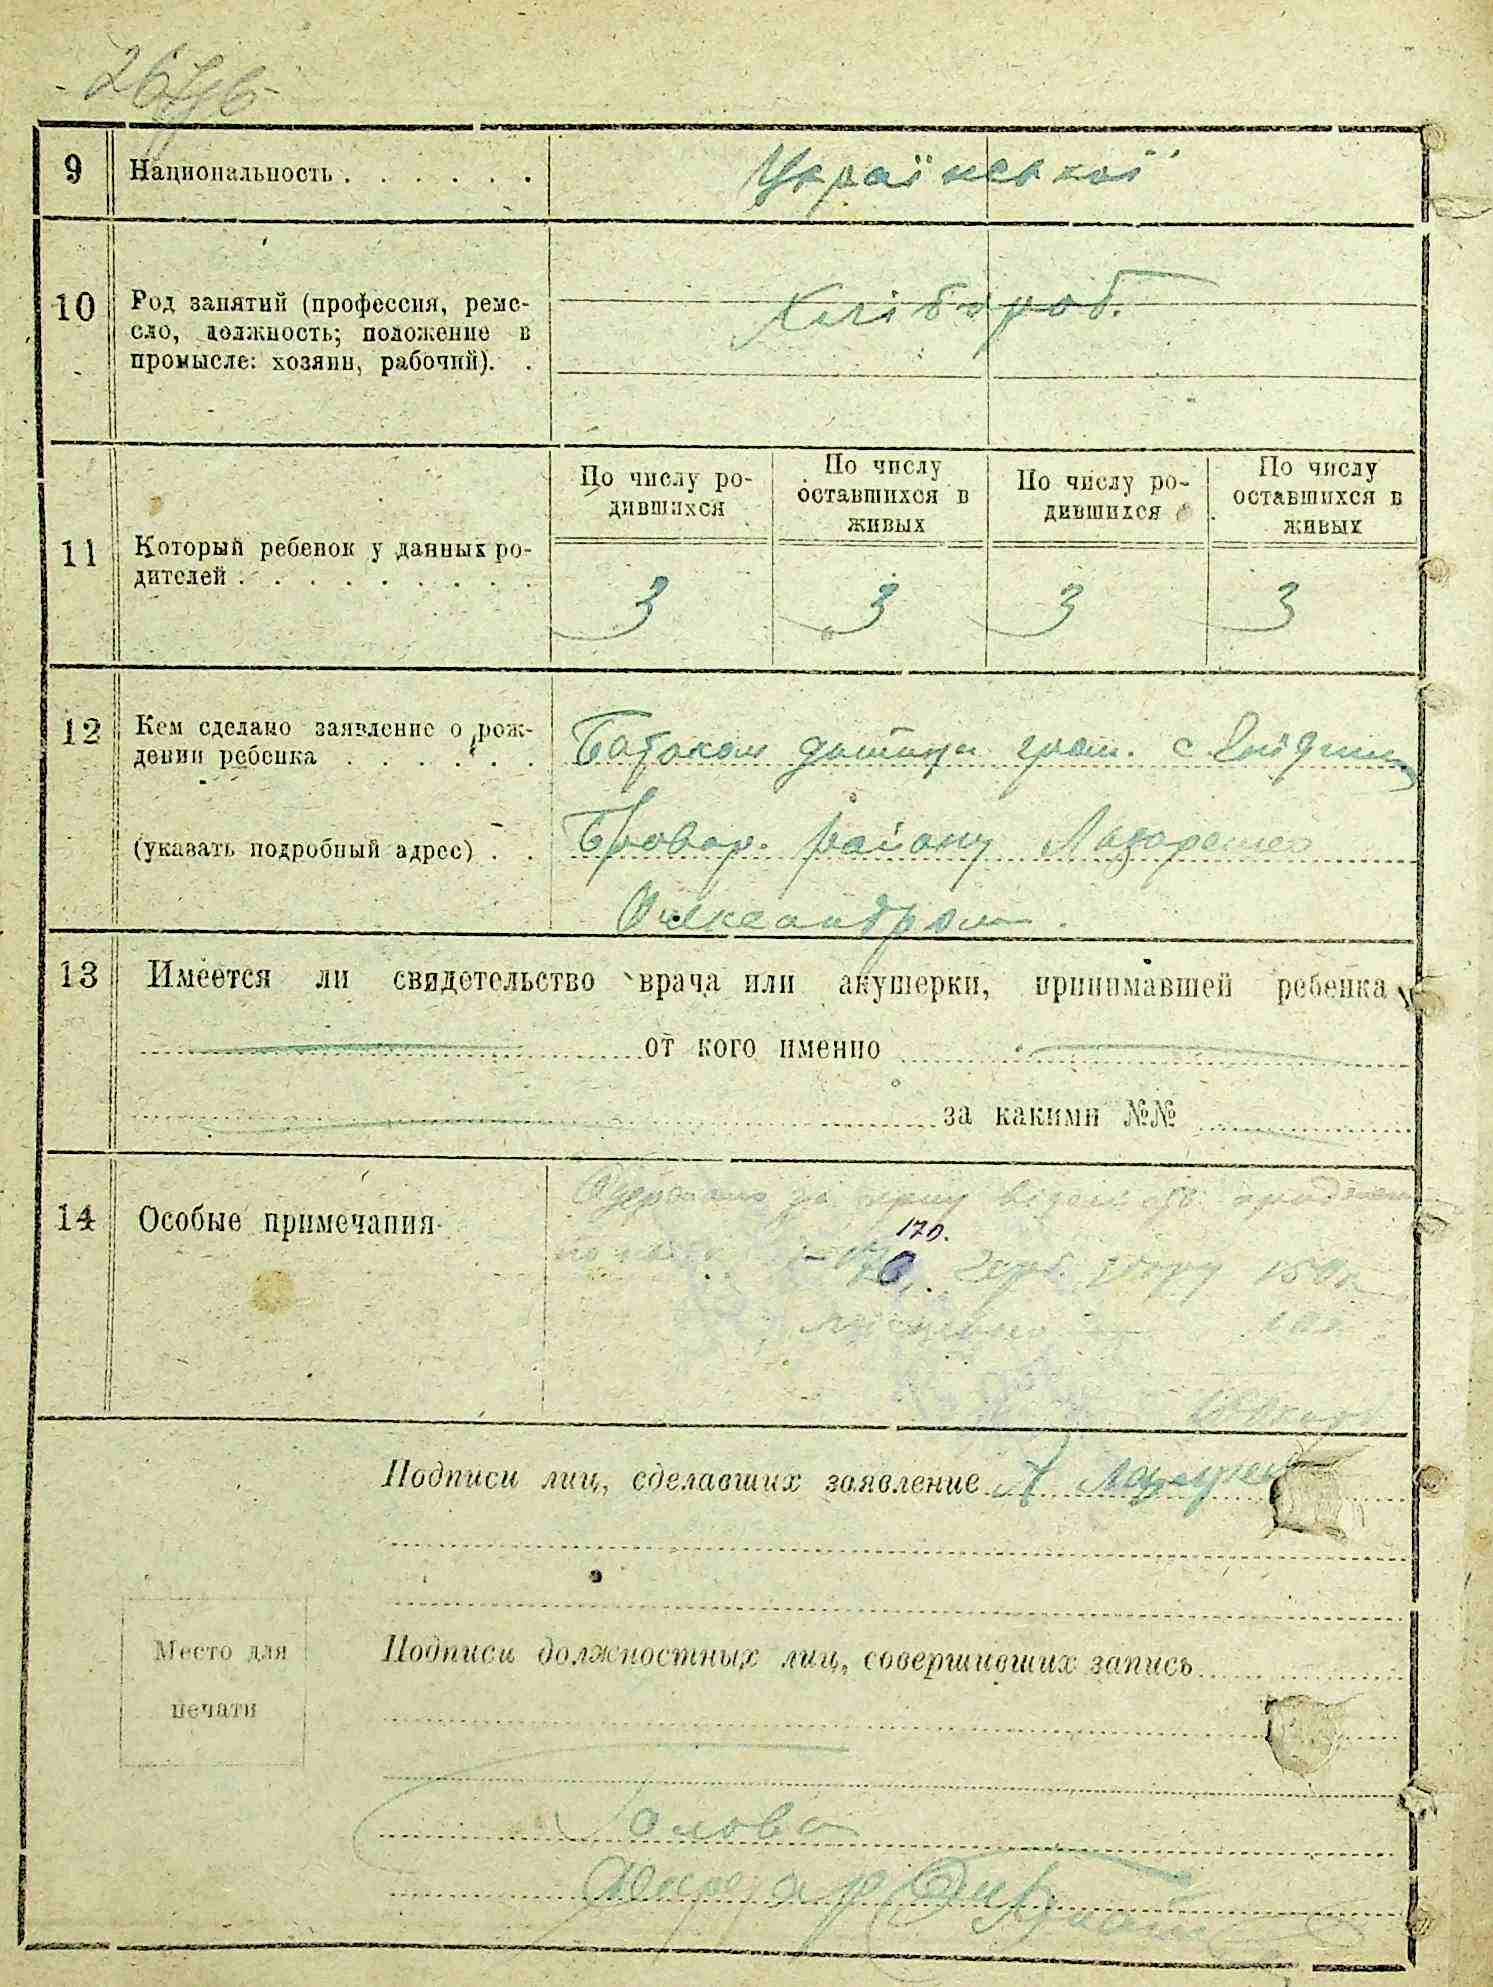 9 Национальность . . . . . .
Української
10 Род занятий (профессия, реме-
сло, должность; положение в
промысле: хозяин, рабочий). .
Хлібороб.
11 Который ребенок у данных ро-
дителей . . . . . . . . . .
По числу ро-
дившихся
По числу
оставшихся в
живых
По числу ро-
дившихся
По числу
оставшихся в
живых
3 3 3 3
12 Кем сделано заявление о рож-
дении ребенка . . . . . .
(указать подробный адрес) . .
Батьком дитини гром. с.
Бровар. району Лазаренко
Олександром.
13 Имеется ли свидетельство врача или акушерки, принимавшей ребенка
от кого именно
за какими №№
14 Особые примечания
Одержано за
170.
збору 150
100
Подписи лиц, сделавших заявление А Лазарен
Место для
печати
Подписи должностных лиц, совершивших запись
Голова
Секретар